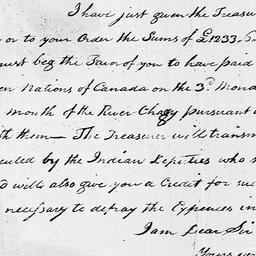 I have just given the Treasu
or to your Order the Sums of £1233,
must beg the Favor of you to have paid
en Nations of Canada on the 3d Monda
month of the River Chazy pursuant
th them — The Treasurer will transm
cuted by the Indian Deputies who
d will also give you a Credit for su
necessary to defray the Expences in
I am Dear Sir
Yours